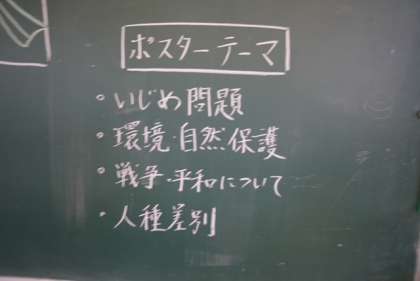 ポスターテーマ
・いじめ問題
・環境・自然保護
・戦争・平和について
・人種差別